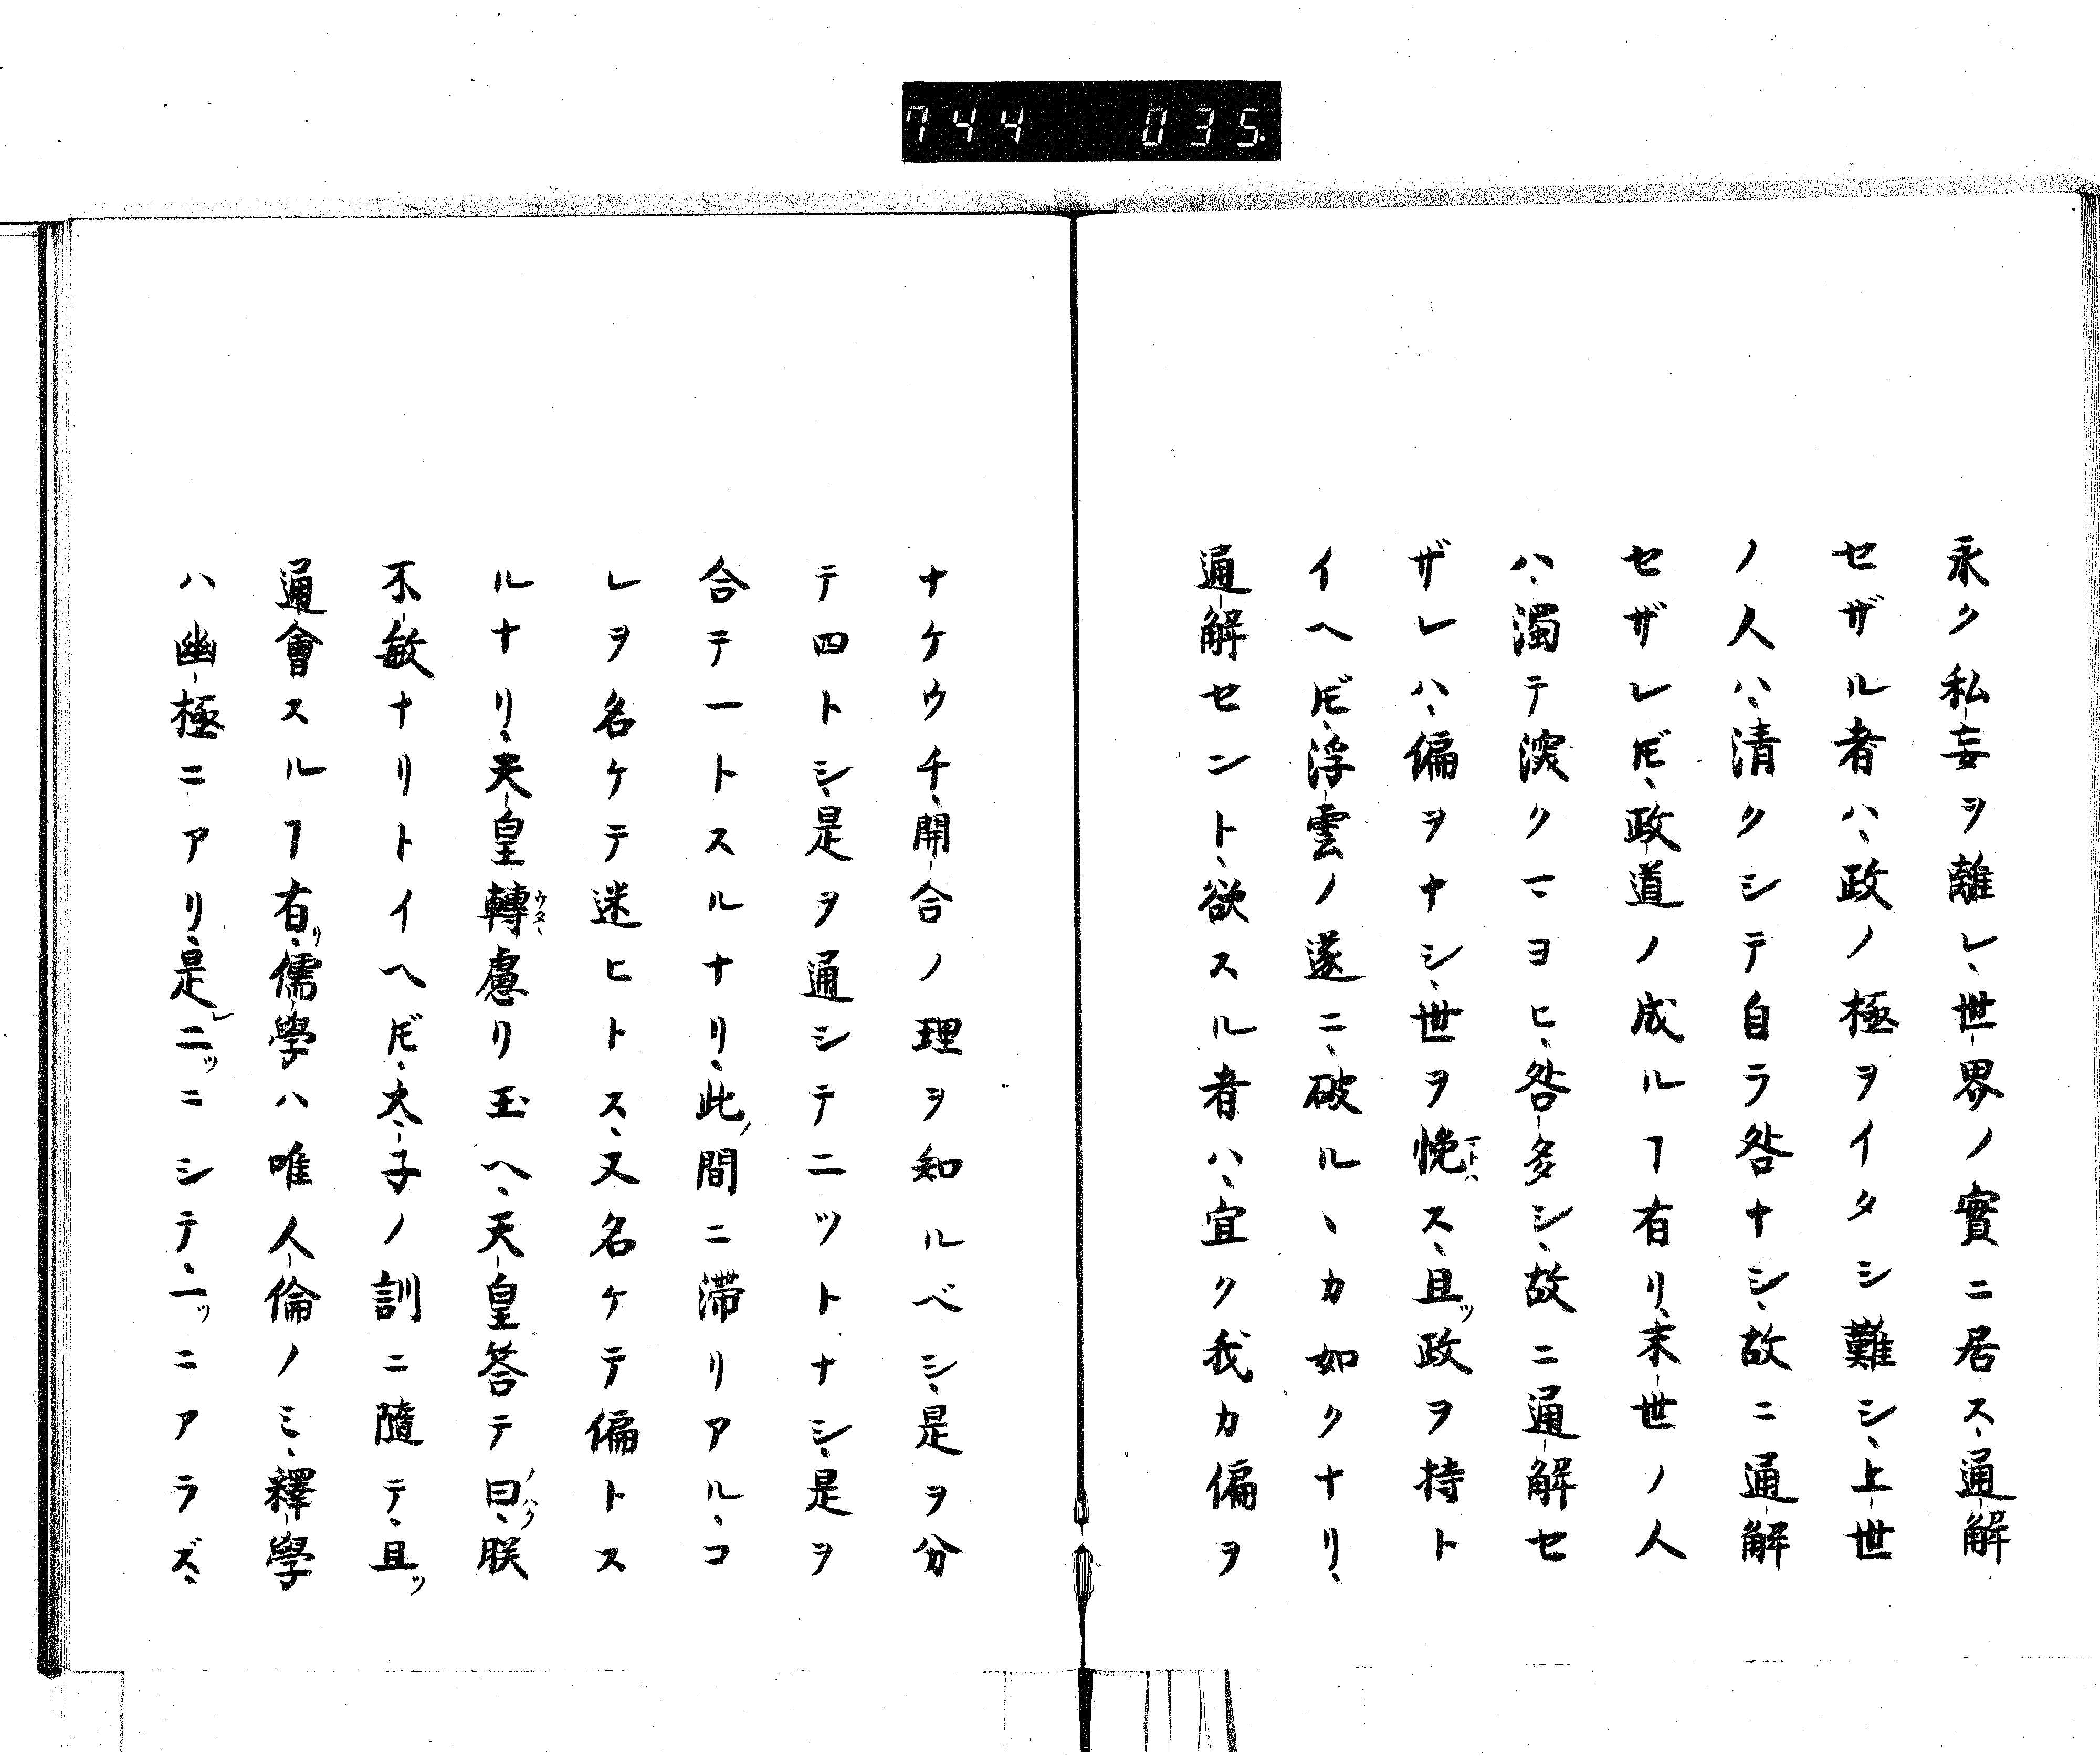 744 035.
永ク私妄ヲ離レ、世界ノ實ニ居ス、通解
セザル者ハ、政ノ極ヲイタシ難シ、上世
ノ人ハ、清クシテ自ラ咎ナシ、故ニ通解
セザレ𪜈、政道ノ成ルヿ有リ、末世ノ人
ハ、濁テ深クマヨヒ、咎多シ、故ニ通解セ
ザレハ、偏ヲナシ、世ヲ惋マトハス、且ツ政ヲ持ト
イヘ𪜈、浮雲ノ遂ニ、破ルヽカ如クナリ、
通解セント、欲スル者ハ、宜ク我カ偏ヲ
ナケウチ、開合ノ理ヲ知ルベシ、是ヲ分
テ四トシ、是ヲ通シテ二ツトナシ、是ヲ
合テ一トスルナリ、此ノ間ニ滞リアル、コ
レヲ名ケテ迷ヒトス、又名ケテ偏トス
ルナリ、天皇轉ウタヽ慮リ玉ヘ、天皇答テ曰ノハク、朕
不敏ナリトイヘ𪜈、太子ノ訓ニ隨テ、且ツ
通會スルヿ有リ、儒學ハ唯人倫ノミ、釋學
ハ幽極ニアリ、是レ二ツニシテ、二ツニアラズ、